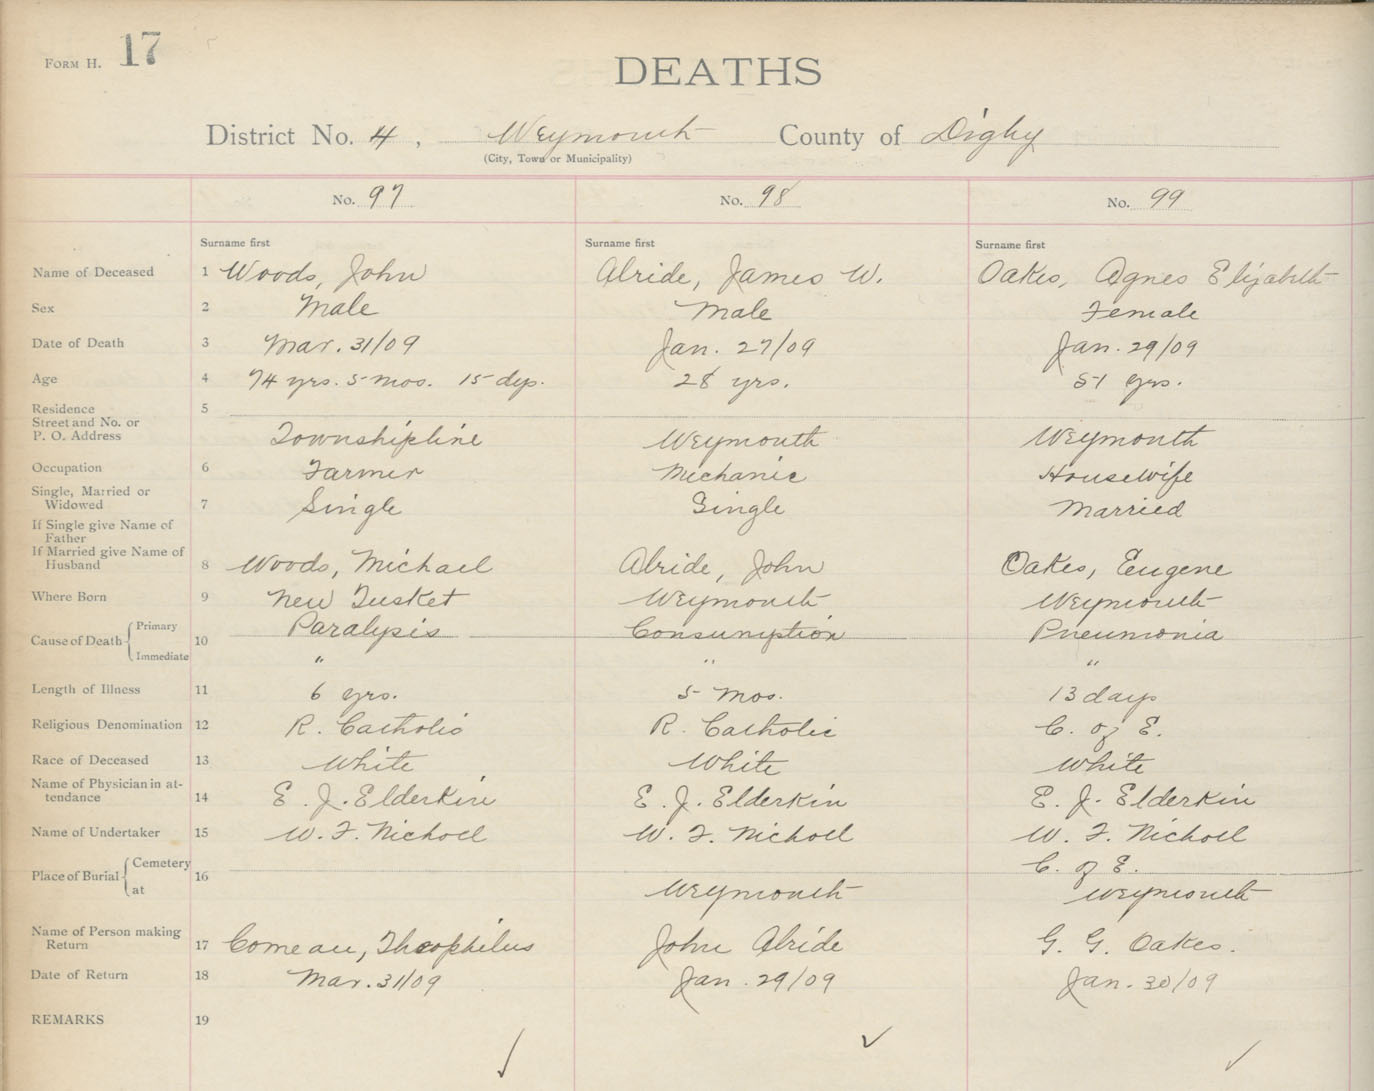 FORM H. 17
DEATHS
District No. 4, Weymouth County of Digby
(City, Town or Municipality)
No. 97 No. 98 No. 99
Surname first Surname first Surname first
Name of Deceased 1 Woods, John Alride, James W. Oakes, Agnes Elizabeth
Sex 2 Male Male Female
Date of Death 3 Mar. 31/09 Jan. 27/09 Jan. 29/09
Age 4 74 yrs. 5 mos. 15 dys. 28 yrs. 51 yrs.
Residence 5
Street and No. or
P. O. Address Townshipline Weymouth Weymouth
Occupation 6 Farmer Mechanic Housewife
Single, Married or
Widowed 7 Single Single Married
If Single give Name of
Father
If Married give Name of
Husband 8 Woods, Michael Alride, John Oakes, Eugene
Where Born 9 New Tusket Weymouth Weymouth
Cause of Death Primary 10 Paralysis Consumption Pneumonia
Immediate " " "
Length of Illness 11 6 yrs. 5 mos. 13 days
Religious Denomination 12 R. Catholic R. Catholic C. of E.
Race of Deceased 13 White White White
Name of Physician in at-
tendance 14 E. J. Elderkin E. J. Elderkin E. J. Elderkin
Name of Undertaker 15 W. F. Nicholl W. F. Nicholl W. F. Nicholl
Place of Burial Cemetery 16 C. of E.
at Weymouth Weymouth
Name of Person making
Return 17 Comeau, Theophilus John Alride G. G. Oakes.
Date of Return 18 Mar. 31/09 Jan. 29/09 Jan. 30/09
REMARKS 19